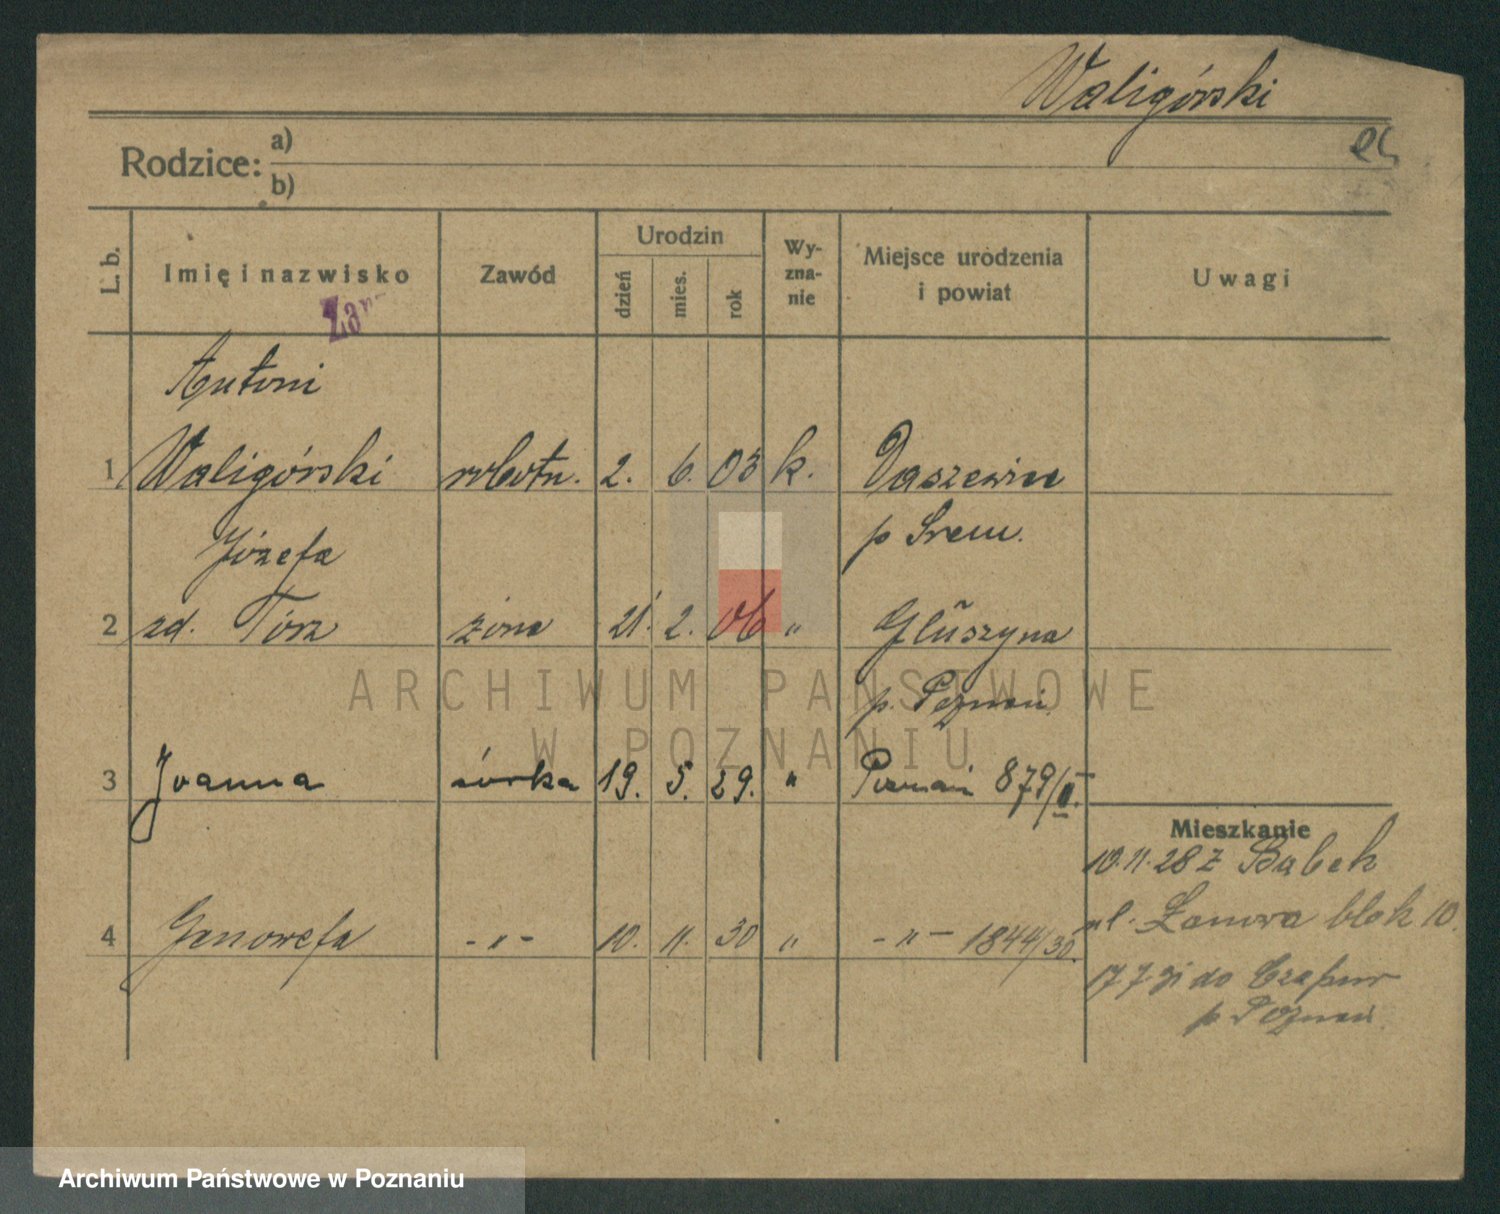 Waligórski
Rodzice: a)
b)
L. b. Imię i nazwisko Zawód Urodzin dzień mies. rok Wy-zna-nie Miejsce urodzenia i powiat Uwagi
Antoni
1 Waligórski robotn. 2. 6. 03 k. Daszewice
p Śrem.
Józefa
2 zd. Tórz żona 21. 2. 06 " Głuszyna
p. Poznań
3 Joanna córka 19. 5. 29. " Poznań 879/II.
Mieszkanie
10.11.28 z Babek
4 Genowefa - " - 10. 11. 30 " - " - 1844/30.
ul. Łanowa blok 10.
17 7 31 do Czapur
p Poznań
ARCHIWUM PAŃSTWOWE
W POZNANIU
Archiwum Państwowe w Poznaniu